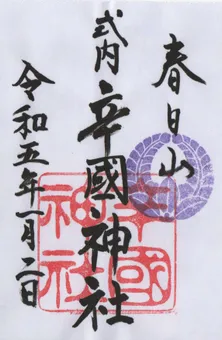 春日山
式内 辛國神社
令和五年一月二日
辛國
神社